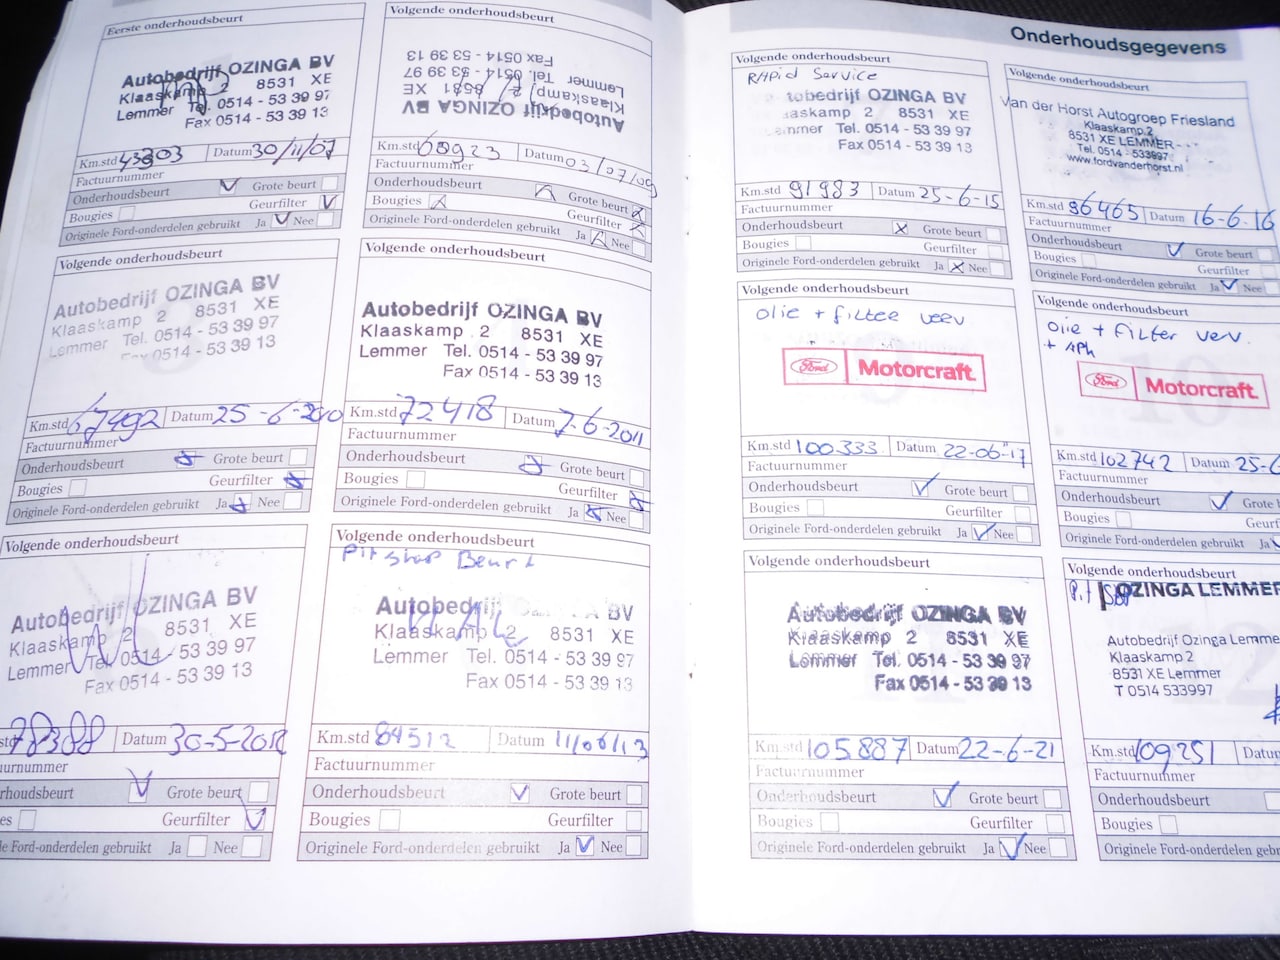 Eerste onderhoudsbeurt
Autobedrijf OZINGA BV
Klaaskamp 2 8531 XE
Lemmer Tel. 0514 - 53 39 97
Fax 0514 - 53 39 13
Km.std Datum 30/11/07
Factuurnummer
Onderhoudsbeurt Grote beurt
Bougies Geurfilter
Originele Ford-onderdelen gebruikt Ja Nee
Volgende onderhoudsbeurt
Autobedrijf OZINGA BV
Klaaskamp 2 8531 XE
Lemmer Tel. 0514 - 53 39 97
Fax 0514 - 53 39 13
Km.std 60923 Datum 03/07/09
Factuurnummer
Onderhoudsbeurt Grote beurt
Bougies Geurfilter
Originele Ford-onderdelen gebruikt Ja Nee
Volgende onderhoudsbeurt
Autobedrijf OZINGA BV
Klaaskamp 2 8531 XE
Lemmer Tel. 0514 - 53 39 97
Fax 0514 - 53 39 13
Km.std 67492 Datum 25-6-2010
Factuurnummer
Onderhoudsbeurt Grote beurt
Bougies Geurfilter
Originele Ford-onderdelen gebruikt Ja Nee
Volgende onderhoudsbeurt
Autobedrijf OZINGA BV
Klaaskamp 2 8531 XE
Lemmer Tel. 0514 - 53 39 97
Fax 0514 - 53 39 13
Km.std 72418 Datum 7-6-2011
Factuurnummer
Onderhoudsbeurt Grote beurt
Bougies Geurfilter
Originele Ford-onderdelen gebruikt Ja Nee
Volgende onderhoudsbeurt
Autobedrijf OZINGA BV
Klaaskamp 2 8531 XE
Lemmer Tel. 0514 - 53 39 97
Fax 0514 - 53 39 13
std 78388 Datum 30-5-2012
uurnummer
rhoudsbeurt Grote beurt
es Geurfilter
le Ford-onderdelen gebruikt Ja Nee
Volgende onderhoudsbeurt
Pitstop Beurt
Autobedrij OZINGA BV
Klaaskamp 2 8531 XE
Lemmer Tel. 0514 - 53 39 97
Fax 0514 - 53 39 13
Km.std 84512 Datum 11/06/13
Factuurnummer
Onderhoudsbeurt Grote beurt
Bougies Geurfilter
Originele Ford-onderdelen gebruikt Ja Nee
Onderhoudsgegevens
Volgende onderhoudsbeurt
RApid Service
tobedrijf OZINGA BV
aaskamp 2 8531 XE
emmer Tel. 0514 - 53 39 97
Fax 0514 - 53 39 13
Km.std 91983 Datum 25-6-15
Factuurnummer
Onderhoudsbeurt Grote beurt
Bougies Geurfilter
Originele Ford-onderdelen gebruikt Ja Nee
Volgende onderhoudsbeurt
Van der Horst Autogroep Friesland
Klaaskamp 2
8531 XE LEMMER
Tel. 0514 - 533997
www.fordvanderhorst.nl
Km.std 96465 Datum 16-6-16
Factuurnummer
Onderhoudsbeurt Grote beurt
Bougies Geurfilter
Originele Ford-onderdelen gebruikt Ja Nee
Volgende onderhoudsbeurt
olie + filter verv
Ford Motorcraft
Km.std 100333 Datum 22-06-17
Factuurnummer
Onderhoudsbeurt Grote beurt
Bougies Geurfilter
Originele Ford-onderdelen gebruikt Ja Nee
Volgende onderhoudsbeurt
Olie + filter verv.
+ APk
Ford Motorcraft
Km.std 102742 Datum 25-6
Factuurnummer
Onderhoudsbeurt Grote b
Bougies Geurfi
Originele Ford-onderdelen gebruikt Ja
Volgende onderhoudsbeurt
Autobedrijf OZINGA BV
Klaaskamp 2 8531 XE
Lemmer Tel. 0514 - 53 39 97
Fax 0514 - 53 39 13
Km.std 105887 Datum 22-6-21
Factuurnummer
Onderhoudsbeurt Grote beurt
Bougies Geurfilter
Originele Ford-onderdelen gebruikt Ja Nee
Volgende onderhoudsbeurt
OZINGA LEMMER
Autobedrijf Ozinga Lemme
Klaaskamp 2
8531 XE Lemmer
T 0514 533997
Km.std 109251 Datu
Factuurnummer
Onderhoudsbeurt
Bougies
Originele Ford-onderdelen gebr